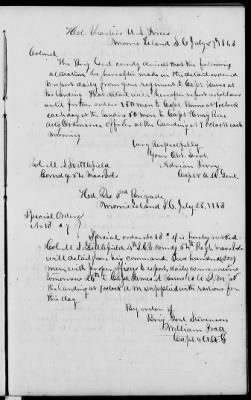 Hd. Quarters U.S. Forces
Morris Island S.C. July 27th 1863
Colonel
The Brig Genl Comdg directs that the following
alteration be hereafter made in the detail ordered
to report daily from your regiment to Capt
the Landing. That detail will hereafter report
until further orders 150 men to Capt at 7 o'clock
each day at the landing 50 men to Capt
Ordnance officer at the Landing at 7 o'clock each
morning
Very respectfully
Your Obt Servt
Adrian Terry
Capt & A.A. Genl
Col. M. S. Littlefield
Comdg 54th Mass Vols
Hd. Qrs 2nd Brigade
Morris Island S.C. July 28, 1863
Special Orders
No
Special orders is hereby revoked
Col. M. S. Littlefield 4th S.C. Comdg 54th Regt Mass Vols
will detail from his command two hundred
men with proper officers to report daily commencing
tomorrow 29th to Capt James
the Landing at 7 o'clock A.M. supplied with rations for
the day
By order of
Brig. Genl Stevenson
William
Capt & A.A.G.